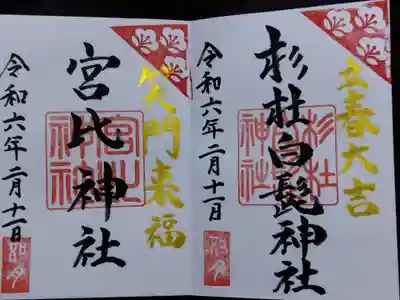 立春大吉
杉杜白髭神社
杉杜白髭神社
令和六年二月十一日
如月
笑門来福
宮比神社
宮比神社
令和六年二月十一日
如月